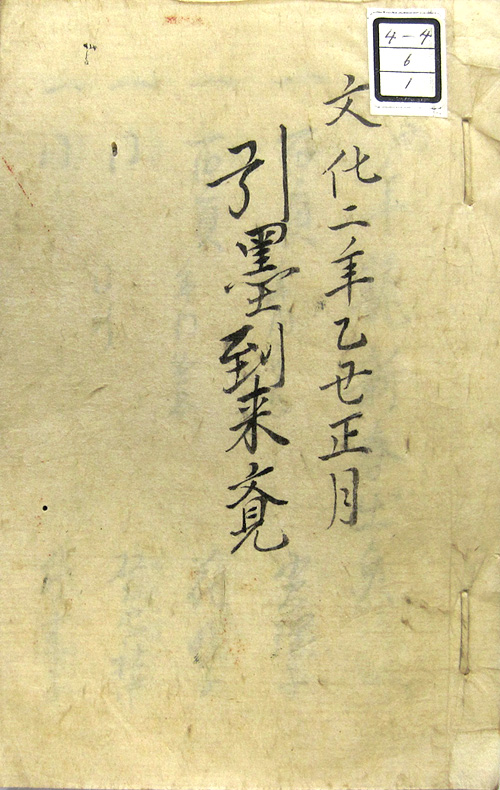 文化二年乙丑正月
引墨到来覚
4-4
6
1